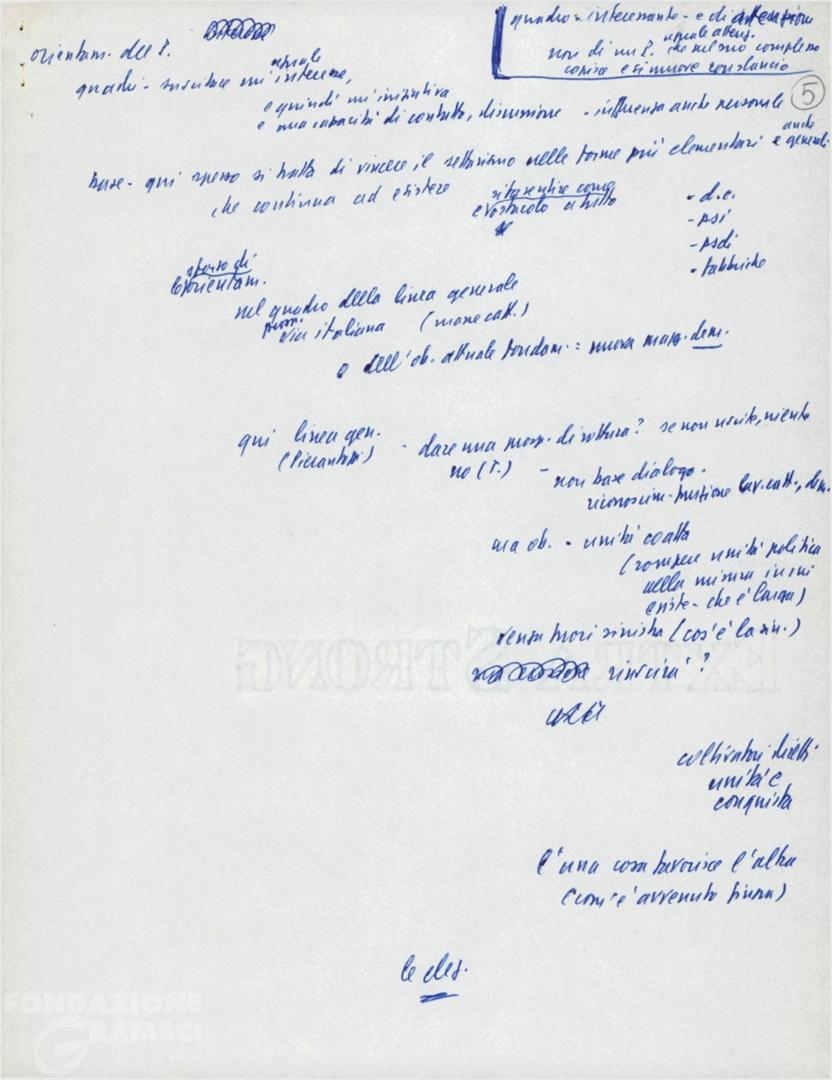 quadro interessante - e di attenzione
uguale attenz.
non di un P. che nel suo complesso
capisce e si muove con slancio
5
orientam. del P.
uguale
quadri - suscitare un'interesse,
e quindi un'iniziativa
e una capacità di contatto, discussione - influenza anche personale
base - qui spesso si tratta di vincere il settarismo nelle forme più elementari e anche generali
che continua ad esistere
ostacolo a tutto
- d.c.
- psi
- psdi
- fabbriche
sforzo di
orientam.
nel quadro della linea generale
via italiana (masse catt.)
e dell'ob. attuale fondam.: nuova magg. dem.
qui linea gen.
(Pierantozzi)
- dare una prosp. di rottura? se non uscite, niente
no (T.) - non base dialogo.
riconoscim. funzione lav. catt., dem.
ma ob. - unità coatta
(rompere unità politica
nella misura in cui
esiste - che è larga)
senza fuori sinistra (cos'è la sin.)
riuscirà?
coltivatori diretti
unità e
conquista
l'una cosa favorisce l'altra
(com'è avvenuto finora)
le eles.
EXTRA STRONG
FONDAZIONE
GRAMSCI